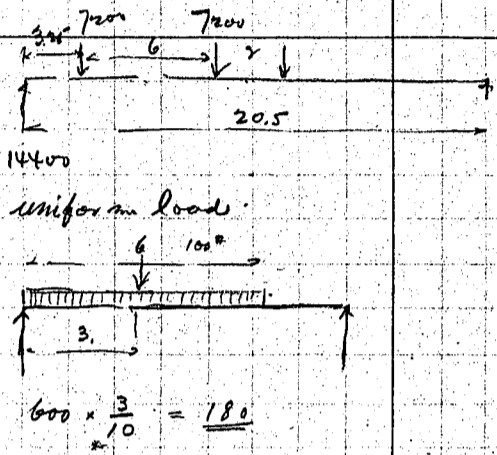 7200 7200
3.25 6 2
20.5
14400
uniform load.
6 100#
3.
600 × 3/10 = 180